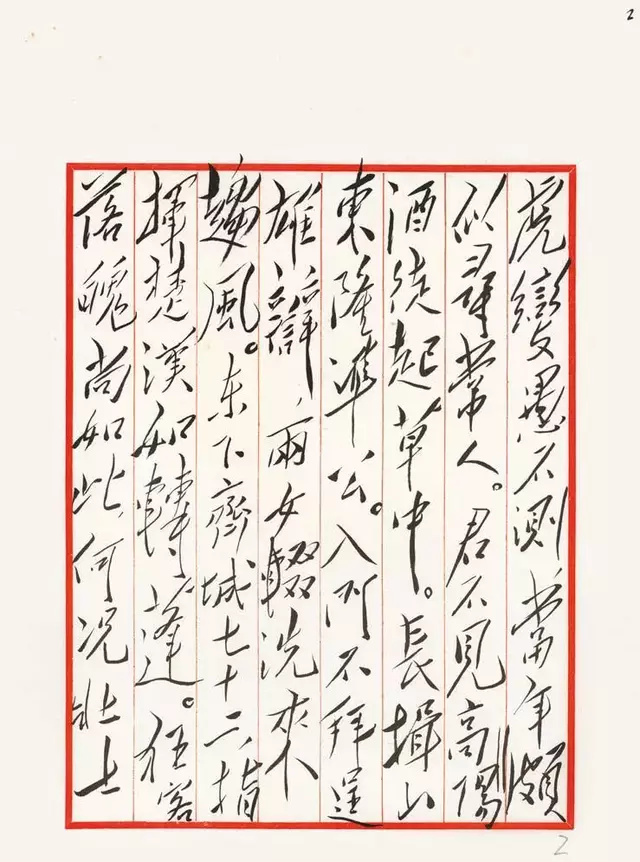 2
虎變愚不測,當年頗
似尋常人。君不見高陽
酒徒起草中。長揖山
東隆準公。入門不拜逞
雄辯,兩女輟洗來
趨風。东下齊城七十二,指
揮楚漢如轉蓬。狂客
落魄尚如此,何況壯士
2